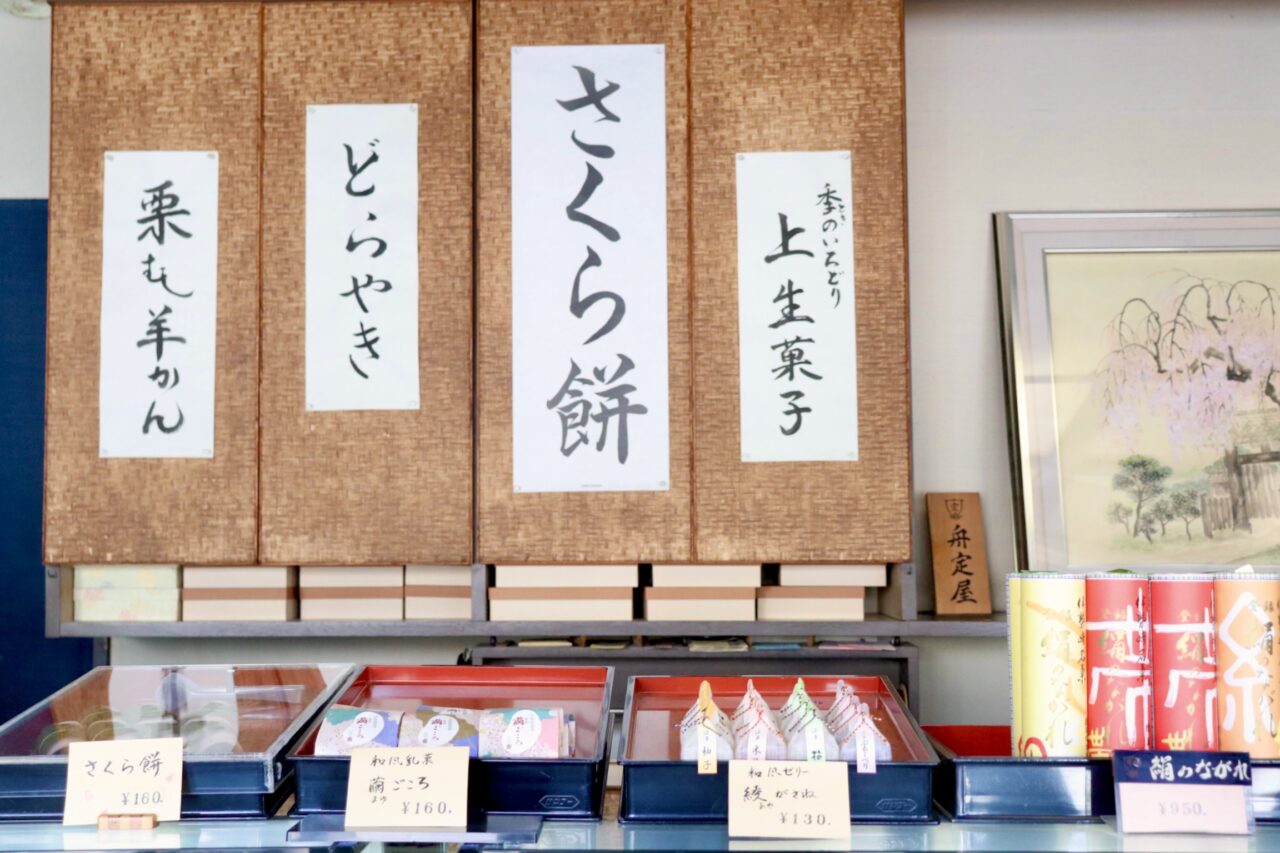 季のいろどり
とき
上生菓子
さくら餅
どらやき
栗むし羊かん
舟定屋
さくら餅
¥160.
和風乳菓
繭ごころ
まゆ
¥160.
和風ゼリー
綾がさね
あや
¥130.
絹のながれ
¥950.